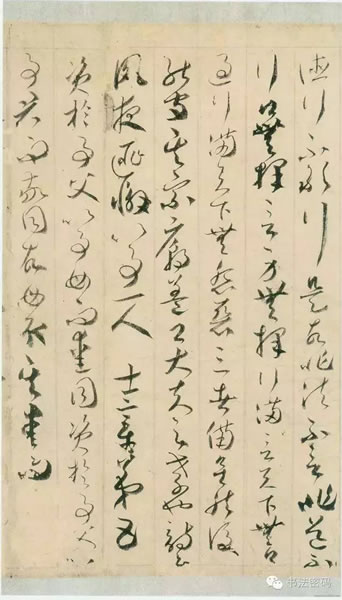 德行不敢行是故非法不言非道不
行口無擇言身無擇行滿言天下無口
過行滿天下無怨惡三者備矣然後
能守其宗廟蓋卿大夫之孝也詩云
夙夜匪懈以事一人 士章第五
資於事父以事母而愛同資於事父以
事君而敬同故母取其愛而
书法密码